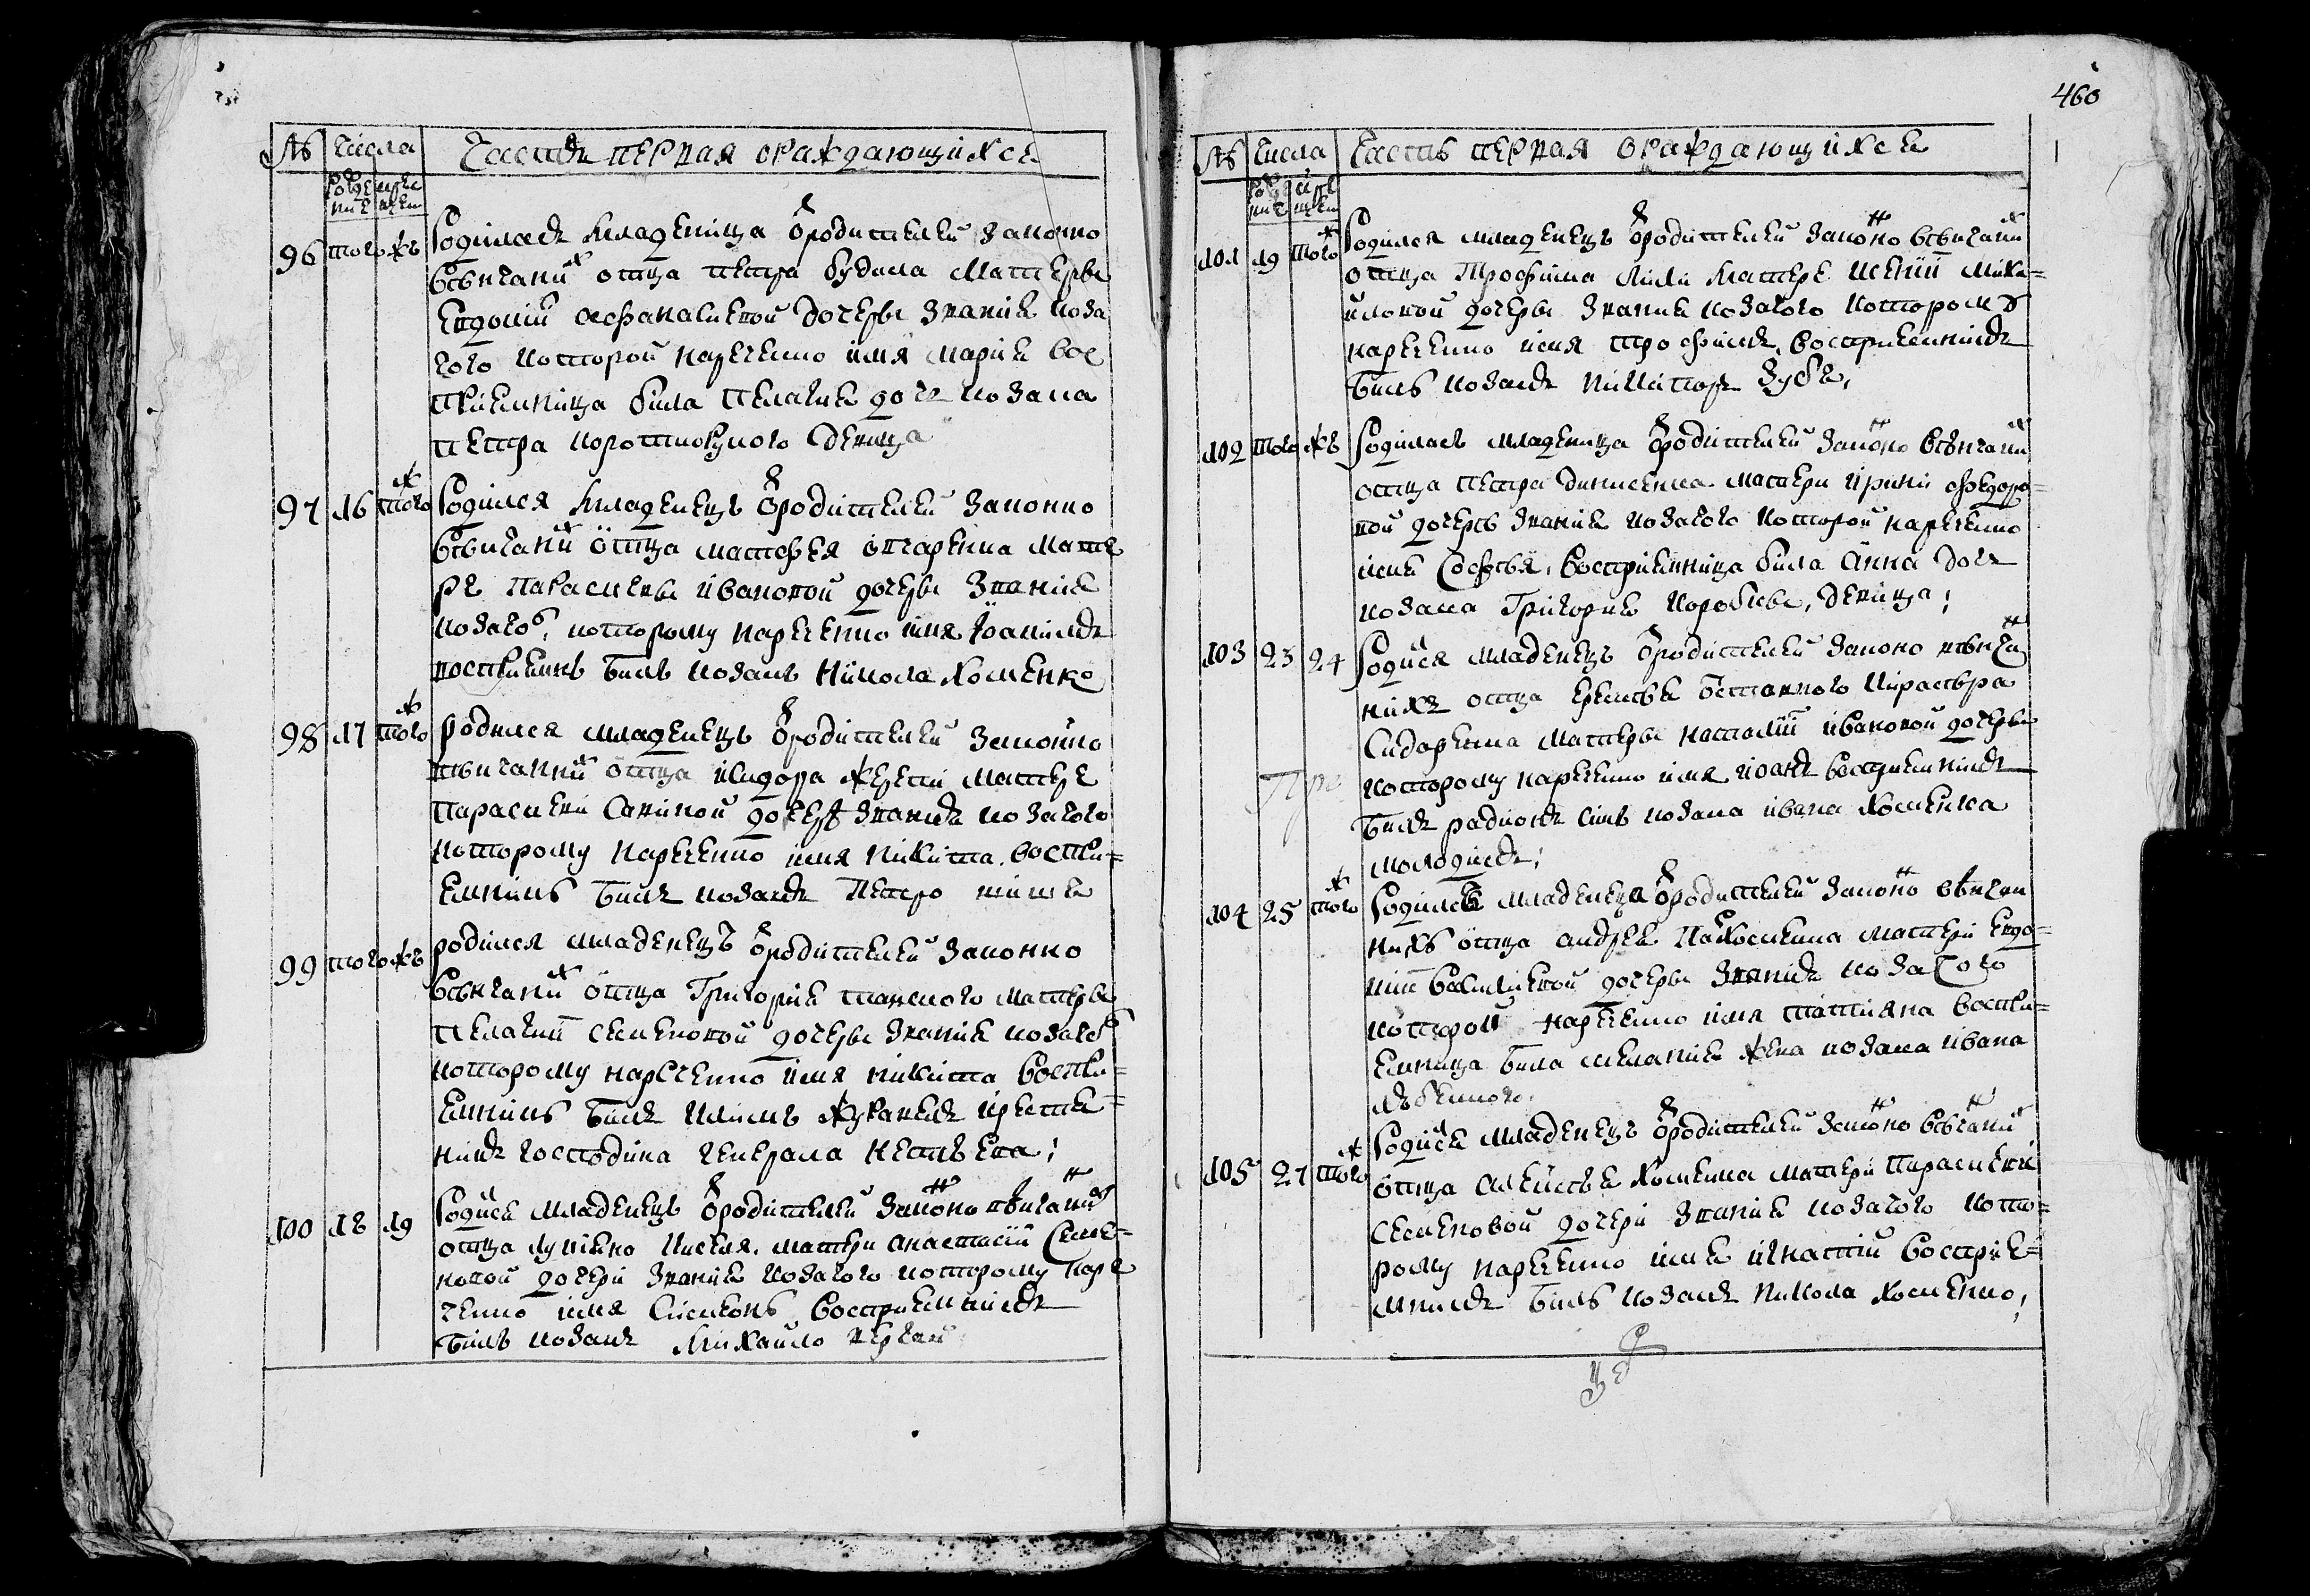 № числа Часть первая ораждающихся
рожде крещ
ние ение
96 того жъ Родилась младеница ѿ родителей законно
вѣнчаних отца петра будила матерѣ
евдокіи афанасиевой дочерѣ звание коза
чого которой наречено имя мария вос
приемница била пелагия дочъ козака
петра коротков девица
97 16 тогож Родился младенецъ ѿ родителей законно
вѣнчаних отца матфея овчаренка мате
ре параскевѣ ивановой дочерѣ звание
козачо, которому наречено имя иоаникъ
восприемникъ билъ козакъ никола хоменко
98 17 тогож родился младенецъ ѿ родителей законно
вѣнчаних отца исидора матере
параскеви савиной дочерѣ звания козачого
которому наречено имя никита. воспри=
емникъ билъ козакъ петро
99 того жъ родился младенецъ ѿ родителей законно
вѣнчаних отца григория матерѣ
пелагии семеновой дочерѣ звания козачо
которому наречено имя никита воспри=
емникъ билъ климъ крестя=
нинъ господина генерала
100 18 19 Родися младенецъ ѿ родителей законно вѣнчаних
отца лукияно кисиля. матери анастасии семе=
новой дочери звания козачого которому наре
чено имя симеонъ восприемникъ
билъ козакъ михайло
460
№ числа Часть первая ораждающихся
рожде креще
ние ние
101 19 тогож Родился младенецъ ѿ родителей законно вѣнчаних
отца трофима матере ксении миха=
иловой дочерѣ звание козачого котором
наречено имя трофимъ, восприемникъ
билъ козакъ никиторъ зубъ,
102 того жъ Родилась младеница ѿ родителей законно вѣнчаних
отца петра денисенка матери ирини федоро=
вой дочерѣ звания козачого которой наречено
имя софья, восприемница била анна дочъ
козака григория коробкѣ, девица;
103 23 24 Родися младенецъ ѿ родителей законо вѣнча
нихъ отца еремѣя отставного
сидоренка матерѣ наталии ивановой дочерѣ
которому наречено имя иоанъ восприемникъ
билъ радионъ синъ козака ивана хоменка
молодикъ;
104 25 тогож Родилась младеница ѿ родителей законно вѣнчан
нихъ отца андрея пархоменка матери евдо=
кии василиевой дочерѣ звания козачого
которой наречено имя татияна воспри=
емница била мелания жена козака ивана
105 27 тогож Родися младенецъ ѿ родителей законно вѣнчаних
отца алексѣя хоменка матери параскеви
семеновой дочери звания козачого кото=
рому наречено имя игнатий восприе=
мникъ билъ козакъ никола хоменко,